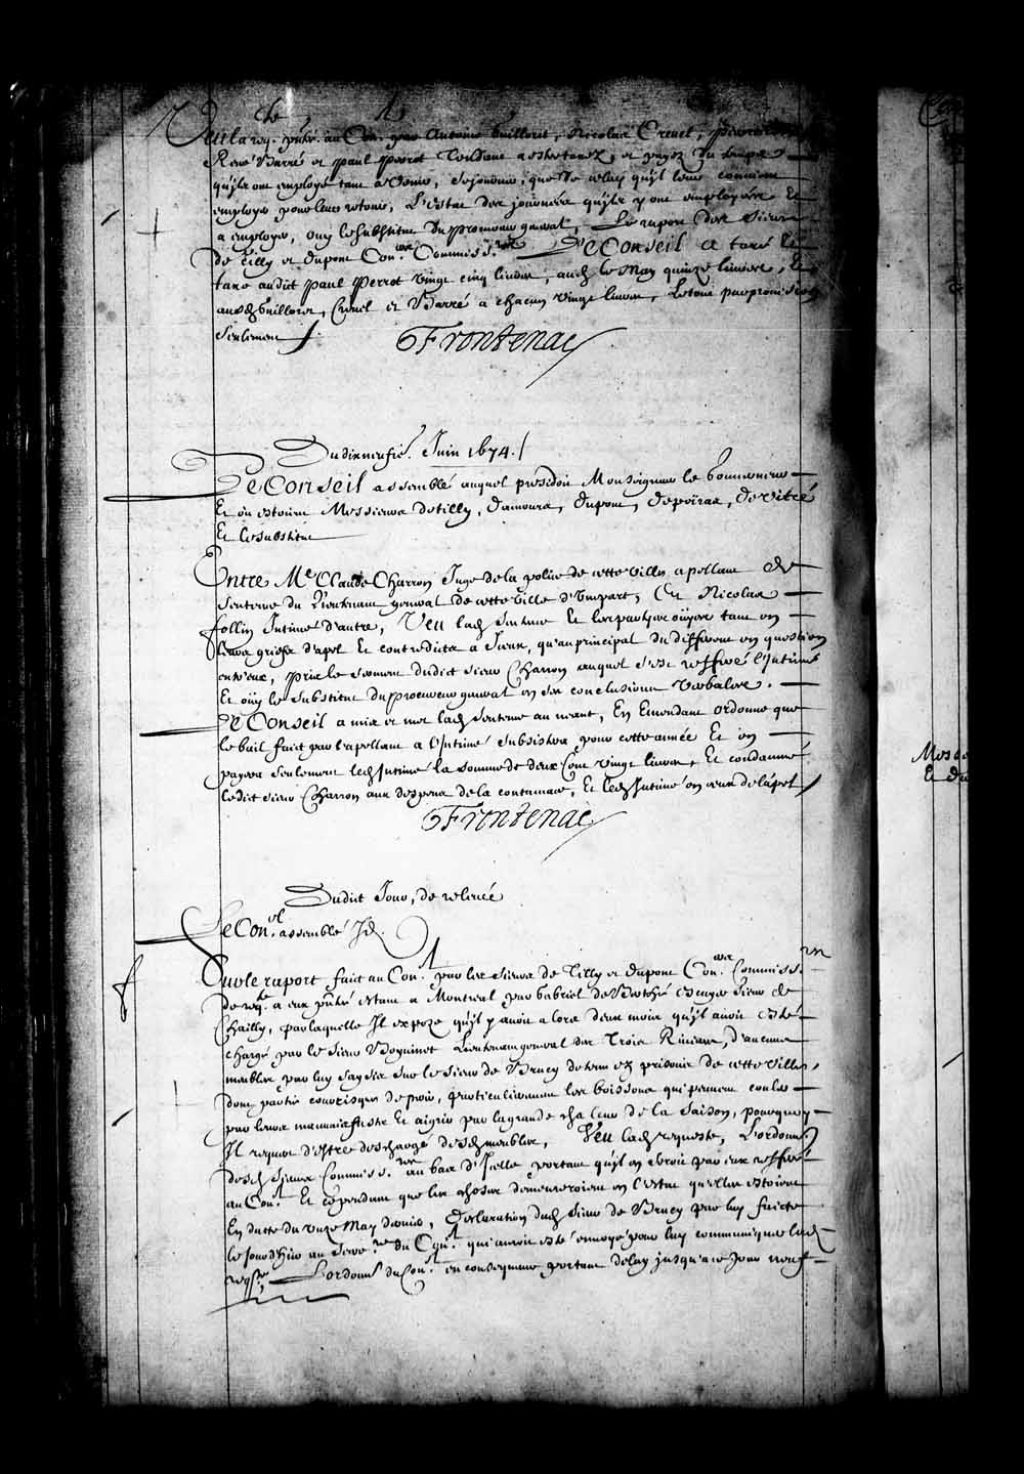 Veu la req.te pñtée au Con.l par Antoine Guillory, Nicolas Crevel, Pierre
René Barré et Paul Perrot tendante a estre taxez, et payez du temps
qu'ils ont employé tant a venir, sejourner, que de celuy qu'il leur convient
employer pour leur retour, L'estat des journées qu'ils y ont employées Et
a employer, ouy le substitut du procureur general, Le raport des sieurs
de Tilly et dupont Con.ers Commiss.res Le Conseil a taxé Et
taxe audict Paul Perrot vingt cinq livres, aud. le May quinze livres, Et
ausd. Guillory, Crevel et Barré a chacun vingt livres,
seulement
Frontenac
Du dixneufie. Juin 1674.
Le Conseil assemblé auquel presidoit Monseigneur le Gouverneur
Et où estoient Messieurs de Tilly, Damours, Dupont, Depeiras, De Vitré
Et le substitut
Entre Me Claude Charron Juge de la police de cette ville apellant de
Sentence du Lieutenant general de cette ville d'Unepart, Et Nicolas
follin Intimé d'autre, Veu lad. sentence Et les parties ouyes tant en
leurs griefs d'apel Et contredicts a Iceux, qu'au principal du different en question
entr'eux, pris le serment dudict sieur Charron auquel s'est refferé l'Intimé
Et ouy le substitut du procureur general en ses conclusions verbales.
Le Conseil a mis et met lad. sentence au neant, En Emendant ordonne que
le bail faict par l'apellant a l'Intimé subsistera pour cette année Et en
payera seulement led. Intimé la somme de deux Cent vingt livres, Et condamné
ledit sieur Charron aux despens de la contumace, Et led. Intimé en ceux de l'apel
Frontenac
Dudict Jour, de relevée
Le Con.el assemblé Id.
Sur le raport faict au Con.l par les sieurs de Tilly et dupont Con.ers Commiss.res en
de req.te a eux pñtée estans a Montreal par Gabriel de Berthé escuyer sieur de
Chailly, par laquelle Il expose qu'il y avoit alors deux mois qu'il avoit esté
chargé par le sieur Boyvinet Lieutenant general des Trois Rivieres, d'aucuns
meubles par luy saysis sur le sieur de Brucy detenu ez prisons de cette ville,
dont partie court risque de perir, particulierement les boissons qui peuvent couler
par leurs mauvais fusts Et aigrir par la grande chaleur de la saison, pourquoy
Il requiert d'estre deschargé desd. meubles, Veu lad. requeste, L'ordonn.ce
desd. sieurs Commiss.res au bas d'Icelle portant qu'il en seroit par eux refferé
au Con.l Et cependant que les choses demeureroient en l'estat qu'elles estoient
En datte du unze May dernier, Declaration dud. sieur de Brucy par luy faicte
le jour d'hier au Secre.re du Con.l qui auroit esté envoyé pour luy communiquer lad.
req.te, L'ordon.ce du Con.l en consequence portant delay jusqu'a ce jour neuf